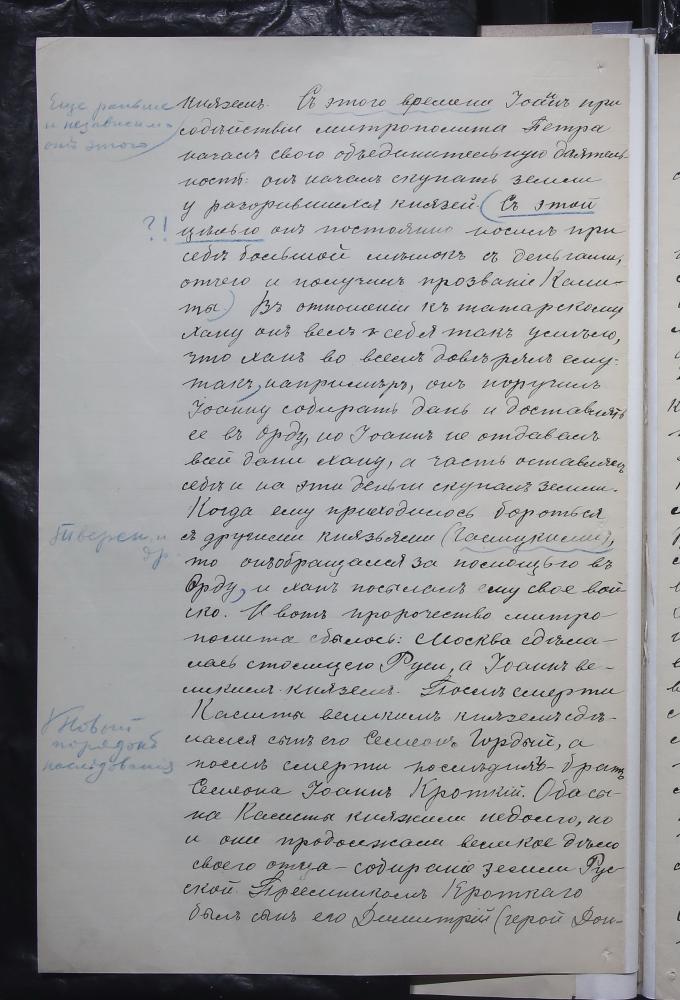 Еще раньше
и независимо
отъ этого
княземъ. Съ этого времени Іоаннъ при
содѣйствіи митрополита Петра
началъ свою объединительную дѣятель-
ность: онъ началъ скупать земли
у разорившихся князей. (Съ этой
?!
цѣлью онъ постоянно носилъ при
себѣ большой мѣшокъ съ деньгами,
отчего и получилъ прозваніе Кали-
ты) Въ отношеніи къ татарскому
хану онъ велъ себя такъ умѣло,
что ханъ во всемъ довѣрялъ ему:
такъ, напримѣръ, онъ поручилъ
Іоанну собирать дань и доставлять
ее въ Орду, но Іоаннъ не отдавалъ
всей дани хану, а часть оставлялъ
себѣ и на эти деньги скупалъ земли.
Когда ему приходилось бороться
Тверск. и
др.
съ другими князьями (Галицкими),
то онъ обращался за помощью въ
Орду, и ханъ посылалъ ему свое вой
ско. И вотъ пророчество митро-
полита сбылось: Москва сдѣла-
лась столицею Руси, а Іоаннъ ве-
ликимъ княземъ. Послѣ смерти
Калиты великимъ княземъ сдѣ-
Новый
порядокъ
наслѣдованія
лался сынъ его Семеонъ Гордый, а
послѣ смерти послѣдняго братъ
Семеона Іоаннъ Кроткій. Оба сы-
на Калиты княжили недолго, но
и они продолжали великое дѣло
своего отца – собираніе земли Рус-
ской. Преемникомъ Кроткаго
былъ сынъ его Димитрій (герой Дон-